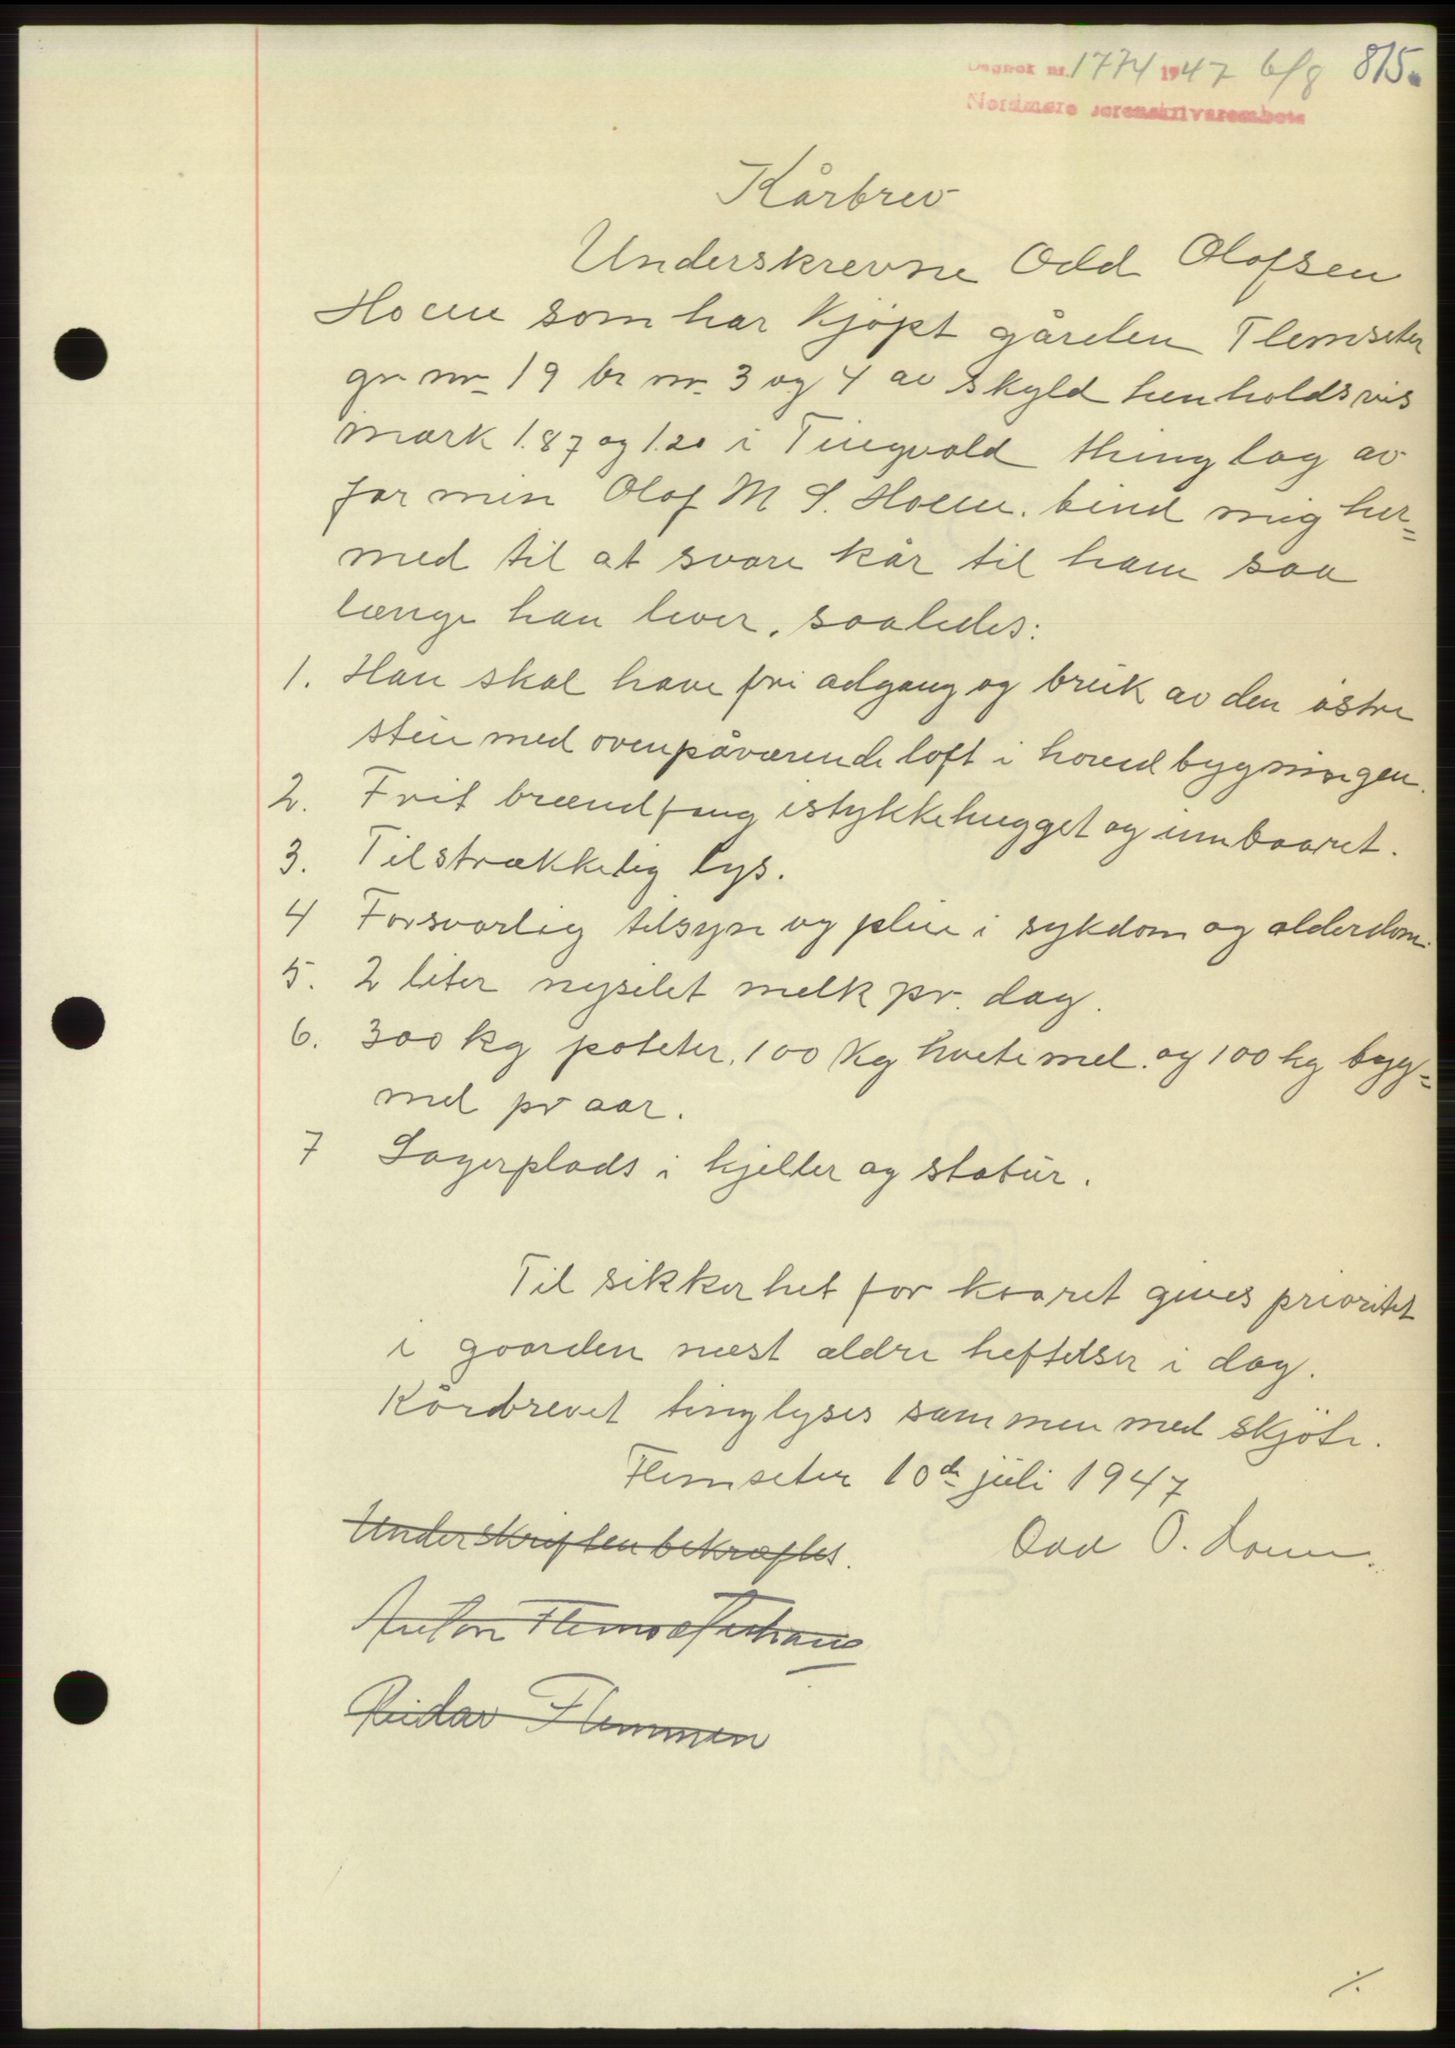 Dagbok nr. 1774 1947 6/8 815.
Nordmøre sorenskriverembete
Kårbrev
Underskrevne Odd Olofsen
Hoem som har kjöpt gården Flemseter
gr nr 19 br nr. 3 og 4 av skyld henholdsvis
mark 1.87 og 1.20 i Tingvold thinglag av
far min Olof M S. Hoem. bind mig her=
med til at svare kår til ham saa
længe han lever, saaledes:
1. Han skal have fri adgang og bruk av den østre
stue med ovenpåværende loft i hovedbygningen.
2. Frit brændfang istykkehugget og innbaaret.
3. Tilstrækkelig lys.
4 Forsvarlig tilsyn og pleie i sykdom og alderdom.
5. 2 liter nysilet melk pr. dag.
6. 300 kg poteter, 100 kg hvetemel. og 100 kg byg=
mel pr aar.
7 Lagerplads i kjeller og stabur.
Til sikkerhet for kaaret gives prioritet
i gaarden næst ældre heftelser i dag.
Kårbrevet tinglyses sammen med skjöte.
Flemseter 10de juli 1947
Underskriften bekræftes.
Odd O. Hoem.
Anton Flemsæterhaug
Reidar Flemmen
./.